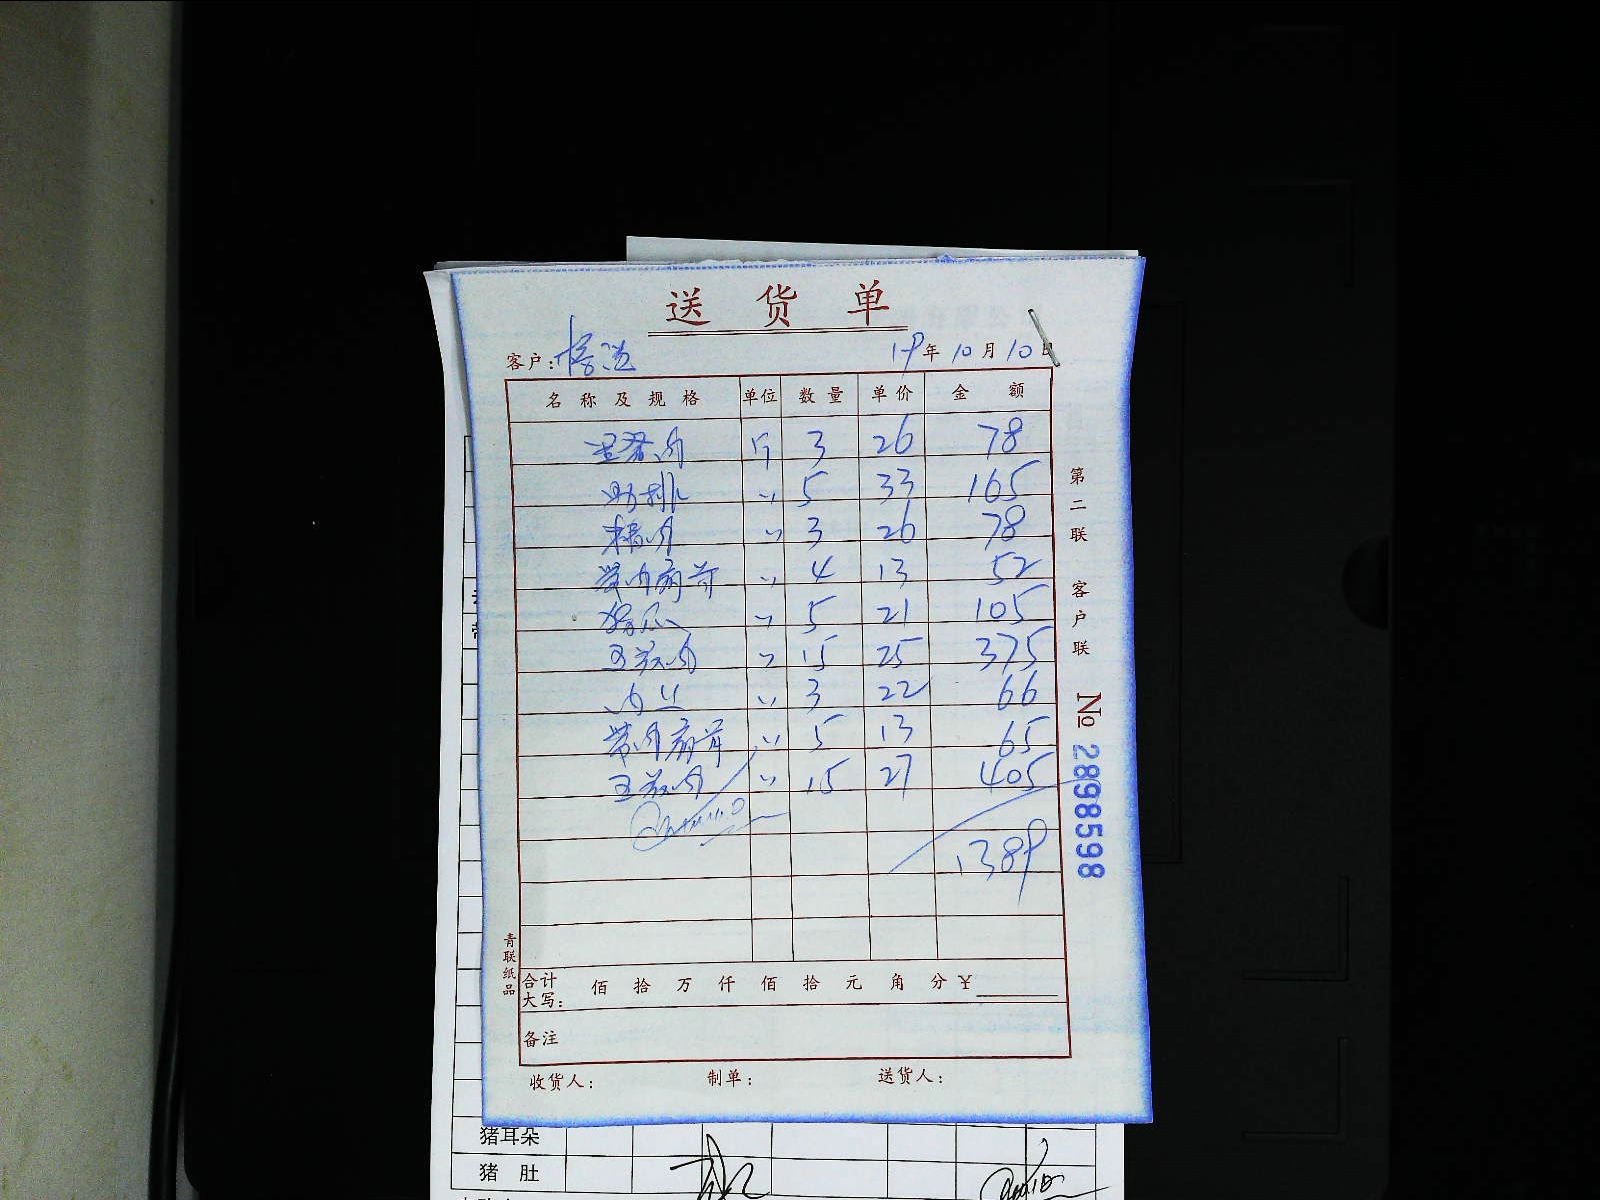 送 货 单
客户: 19年10月10日
名称及规格 单位 数量 单价 金 额
里脊肉 斤 3 26 78
肋排 〃 5 33 165
精肉 〃 3 26 78
带肉扇骨 〃 4 13 52
猪爪 〃 5 21 105
五花肉 〃 15 25 375
肉丝 〃 3 22 66
带肉扇骨 〃 5 13 65
五花肉 〃 15 27 405
1389
合计
大写: 佰 拾 万 仟 佰 拾 元 角 分 ¥
备注
收货人: 制单: 送货人:
第二联 客户联
№ 2898598
青联纸品
猪耳朵
猪 肚